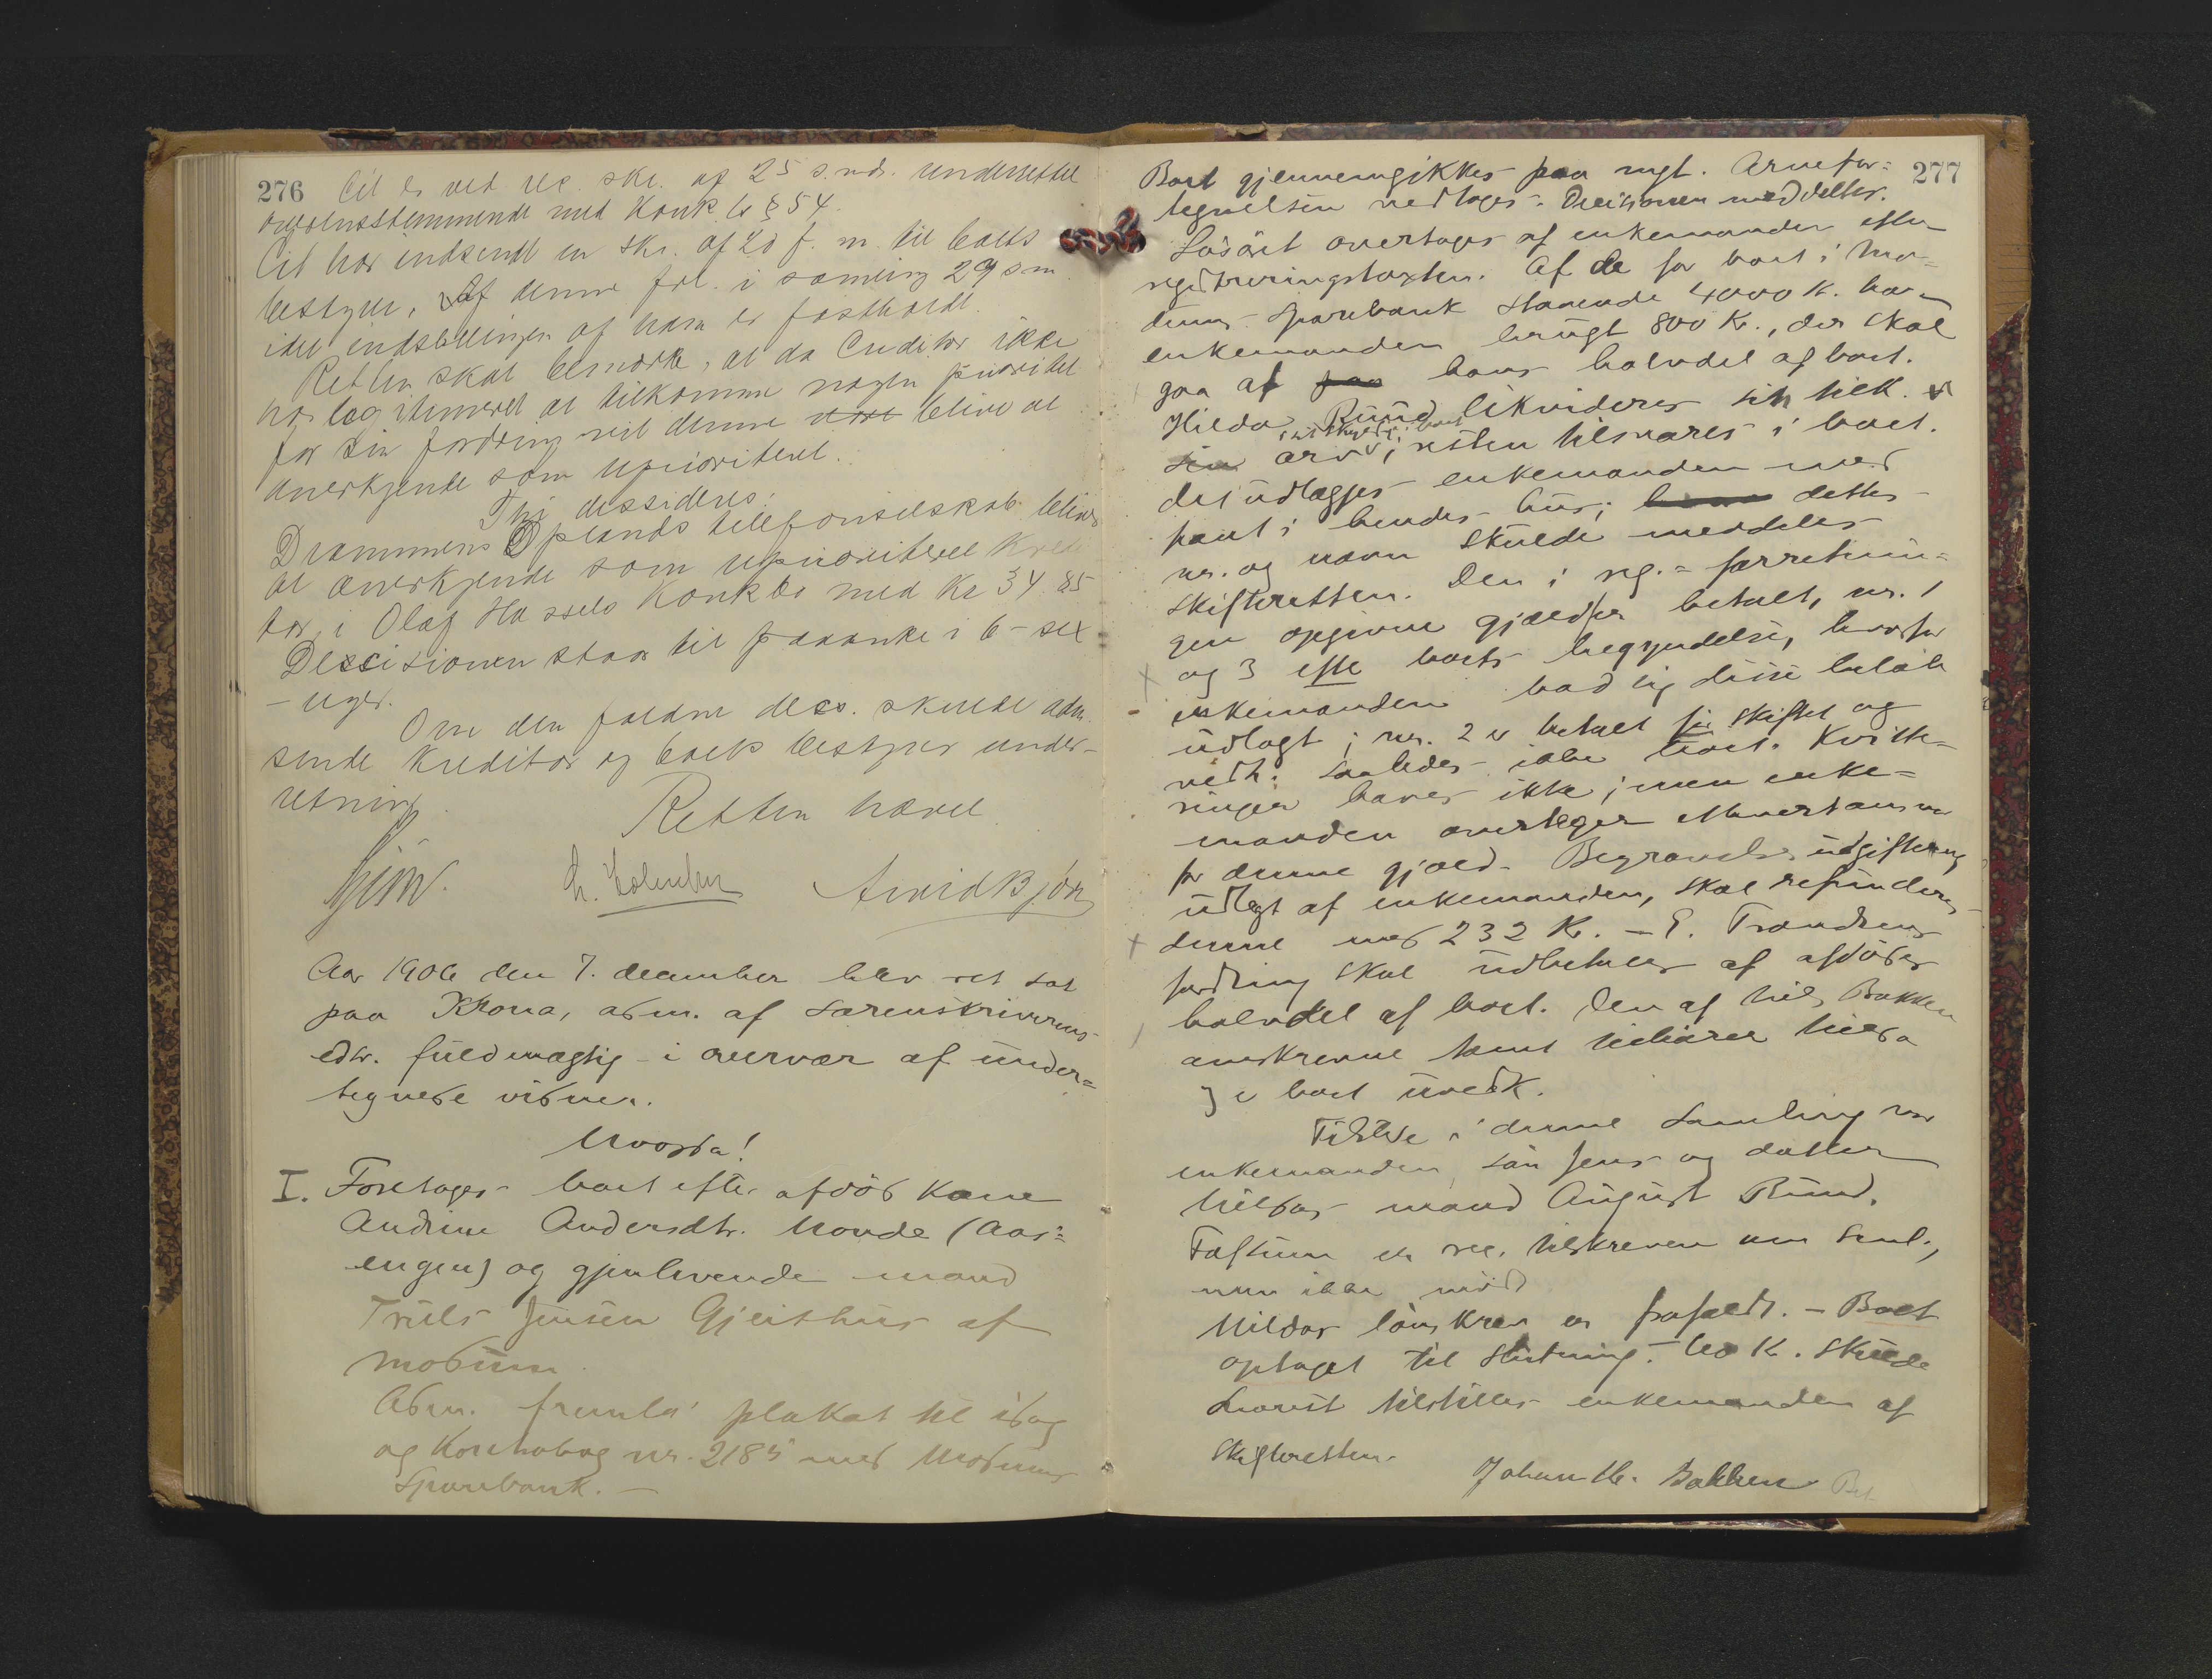 276
Cit er ved rec. skr. af 25 s. md. underrettet
overensstemmende med Konk. ls § 54.
Cit har indsendt en skr. af 28 f. m. til boets
bestyrer. Af denne frl. i samling 29 s. m.
indstillingen af ham er fastholdt.
Retten skal bemærke, at da Creditor ikke
har legitimeret at tilkomme nogen prioritet
for sin fordring vil denne blive at
anerkjende som uprioriteret.
Thi dessideres:
Drammens Oplands telefonselskab bliver
at anerkjende som uprioriteret kredi
tor i Olaf Hassels Konkbo med Kr 34.85
Descisionen staar til paaanke i 6 - sex
- uger.
Om den faldne dess. skulde adm.
sende Kreditor og boets bestyrer under-
retning.
Retten hævet.
Arvid Bjør
Aar 1906 den 7. december blev ret sat
paa Krona, adm. af sorenskriverens
edsv. fuldmægtig i overvær af under=
tegnede vidner.
Hvorda!
I. Foretages boet efter afdød Kone
Andrine Andersdtr. Hovde (Aas=
engen) og gjenlevende mand
Truls Jensen Gjeithus af
Modum.
Adm. fremla' plakat til idag
og Kontrabog nr. 2185 med Modums
Sparebank. -
277
Boet gjennemgikkes paa nyt. Arvefor=
tegnelsen vedtoges. Decisionen meddeltes.
Løsøret overtages af enkemanden efter
registreringstaxten. Af de for boet i Mo=
dums Sparebank staaende 4000 K. har
enkemanden brugt 800 Kr., der skal
gaa af paa hans halvdel af boet.
Hilda Ruud likviderer sin tilk.
sin arv i sit skyld i boet, resten tilsvares i boet.
det udlægges enkemanden med
pant i hendes hus; dettes
nr. og navn skulde meddeles
Skifteretten. Den i reg.=forretnin=
gen opgivne gjæld er betalt, nr. 1
og 3 efter boets begyndelse, hvorfor
enkemanden bad sig disse beløb
udlagt; nr. 2 er betalt før skiftet og
vedk. saaledes ikke boet. Kvitte=
ringer haves ikke; men enke=
manden overtager ethvert ansvar
for denne gjæld. Begravelsesudgifterne,
udlagt af enkemanden, skal refunderes
denne med 232 Kr. - E. Trondsens
fordring skal udbetales af afdødes
halvdel af boet. Den af Nils Bakken
anskrevne tomt tilhører Hilda
og er boet uvedk.
Tilstede i denne samling var
enkemanden, søn Jens og datter
Hildas mand August Ruud.
Fastum er rec. tilskreven om saml.,
men ikke mødt
Hildas løns krav er frafaldt. - Boet
optaget til slutning. 100 K. skulde
snarest tilstilles enkemanden af
Skifteretten.
Johan M. Bakken